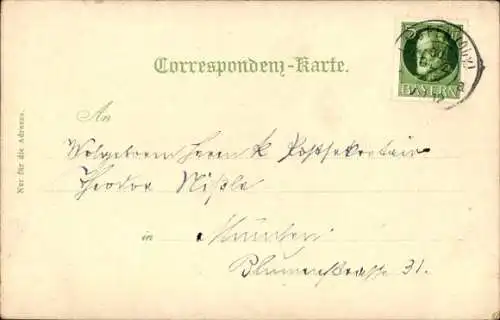 5
BAYERN
Correspondenz-Karte.
Nur für die Adresse.
An
Wolgeborn Herrn k. Postsekretair
Theodor Nißle
in München
Blumenstrasse 31.